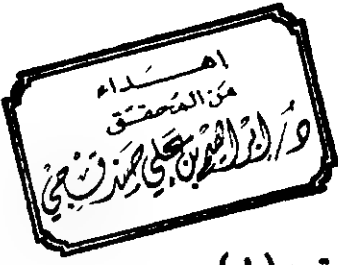 اهـــداء
من المحقق
د/ ابراهيم بن علي صندقجي
(١)